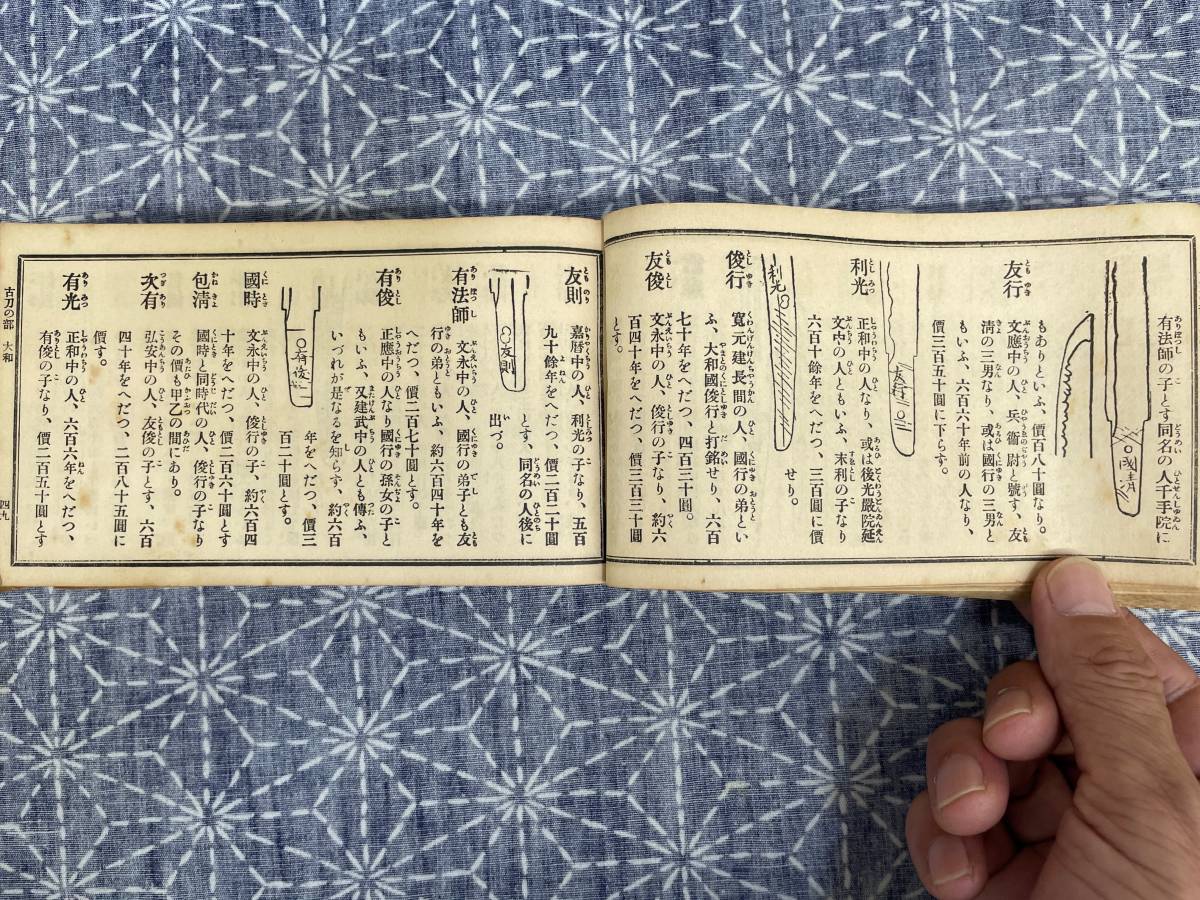 有法師の子とす同名の人千手院に
國清
もありといふ、價百八十圓なり。
友行
文應中の人、兵衞尉と號す、友
淸の三男なり、或は國行の三男と
もいふ、六百六十年前の人なり、
價三百五十圓に下らず。
利光
正和中の人、或は後光嚴院延
文中の人ともいふ、末利の子なり
六百十餘年をへだつ、三百圓に價
せり。
利光
俊行
寬元建長間の人、國行の弟とい
ふ、大和國俊行と打銘せり、六百
七十年をへだつ、四百三十圓。
友俊
文永中の人、俊行の子なり、約六
百四十年をへだつ、價三百三十圓
とす。
友則
嘉曆中の人、利光の子なり、五百
九十餘年をへだつ、價二百二十圓
とす、同名の人後に
出づ。
友則
有法師
文永中の人、國行の弟子とも友
行の弟ともいふ、約六百四十年を
へだつ、價二百七十圓とす。
有俊
正應中の人なり國行の孫女の子と
もいふ、又建武中の人とも傳ふ、
いづれが是なるを知らず、約六百
年をへだつ、價三
百二十圓とす。
有俊
國時
文永中の人、俊行の子、約六百四
十年をへだつ、價二百六十圓とす
包淸
國時と同時代の人、俊行の子なり
その價も甲乙の間にあり。
次有
弘安中の人、友俊の子とす、六百
四十年をへだつ、二百八十五圓に
價す。
有光
正和中の人、六百六年をへだつ、
有俊の子なり、價二百五十圓とす
古刀の部 大和
四九